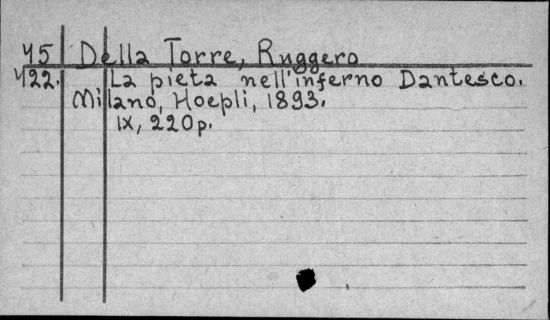 45 Della Torre, Ruggero
422. La pieta nell'inferno Dantesco.
Milano, Hoepli, 1893.
IX, 220p.